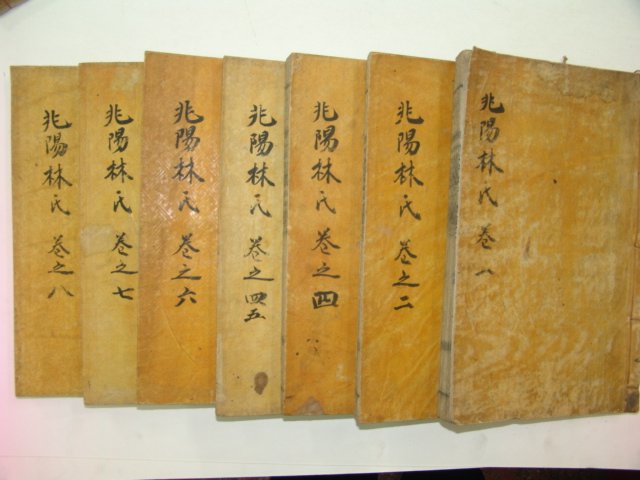 兆陽林氏 卷八
兆陽林氏 卷之二
兆陽林氏 卷之四
兆陽林氏 卷之四五
兆陽林氏 卷之六
兆陽林氏 卷之七
兆陽林氏 卷之八